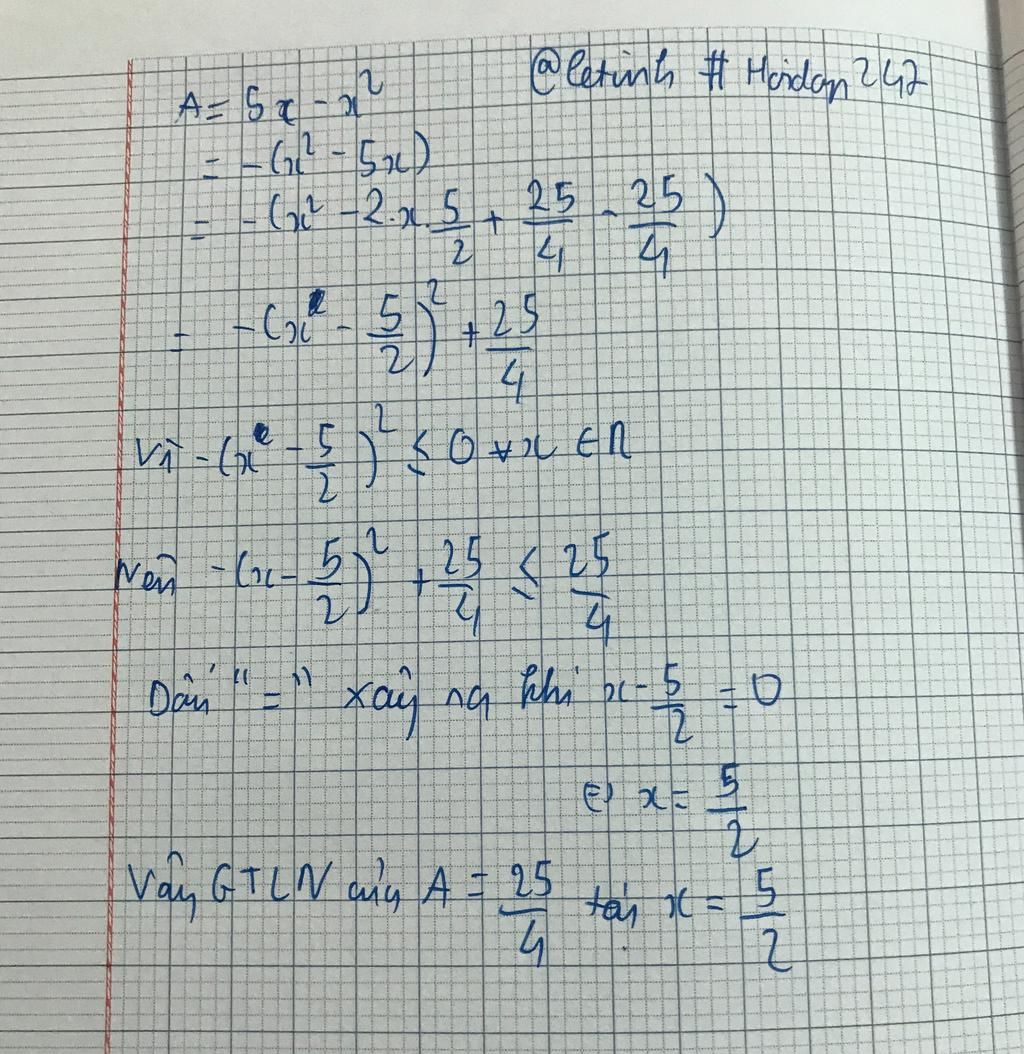 @letinh # Hoidap247
A = 5x - x²
= -(x² - 5x)
= -(x² - 2.x.5/2 + 25/4 - 25/4)
= -(x - 5/2)² + 25/4
Vì -(x - 5/2)² ≤ 0 ∀x ∈ R
Nên -(x - 5/2)² + 25/4 ≤ 25/4
Dấu "=" xảy ra khi x - 5/2 = 0
⇔ x = 5/2
Vậy GTLN của A = 25/4 tại x = 5/2